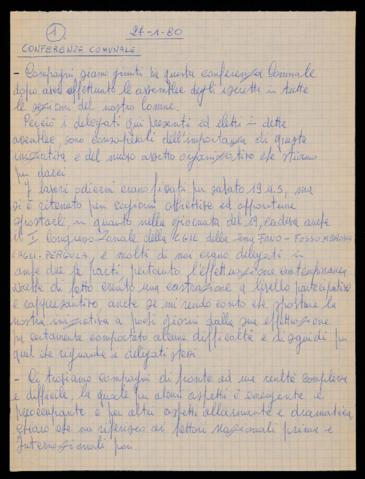 1
27-1-80
CONFERENZA COMUNALE
- Compagni siamo giunti a questa conferenza Comunale
dopo aver effettuato le assemblee degli iscritti in tutte
le sezioni del nostro Comune.
Perciò i delegati qui presenti ed eletti in dette
assemblee, sono consapevoli dell'importanza di questa
iniziativa e del nuovo assetto organizzativo che stiamo
per darci
I lavori odierni erano fissati per sabato 19 u.s., ma
si è ritenuto per ragioni obiettive ed opportune
spostarli, in quanto nella giornata del 19, cadeva anche
il I° Congresso Zonale della CGIL della FANO - FOSSOMBRONE
CAGLI - PERGOLA, e molti di noi erano delegati in
ambedue le parti pertanto l'effettuazione contemporanea
avrebbe di fatto creato una castrazione a livello partecipativo
e rappresentativo anche se mi rendo conto che spostare la
nostra iniziativa a pochi giorni dalla sua effettuazione
ha certamente comportato alcune difficoltà e disguidi per
quel che riguarda i delegati stessi
- Ci troviamo compagni di fronte ad una realtà complessa
e difficile, la quale per alcuni aspetti è emergente e
preoccupante e per altri aspetti allarmante e drammatica
chiaro che mi riferisco ai settori Nazionali prima e
Internazionali poi